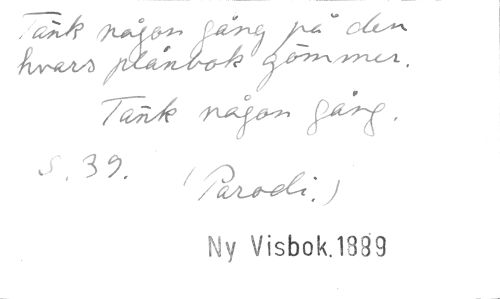 Tänk någon gång på den
hvars plånbok gömmer.
Tänk någon gång.
S. 39.
(Parodi.)
Ny Visbok.1889